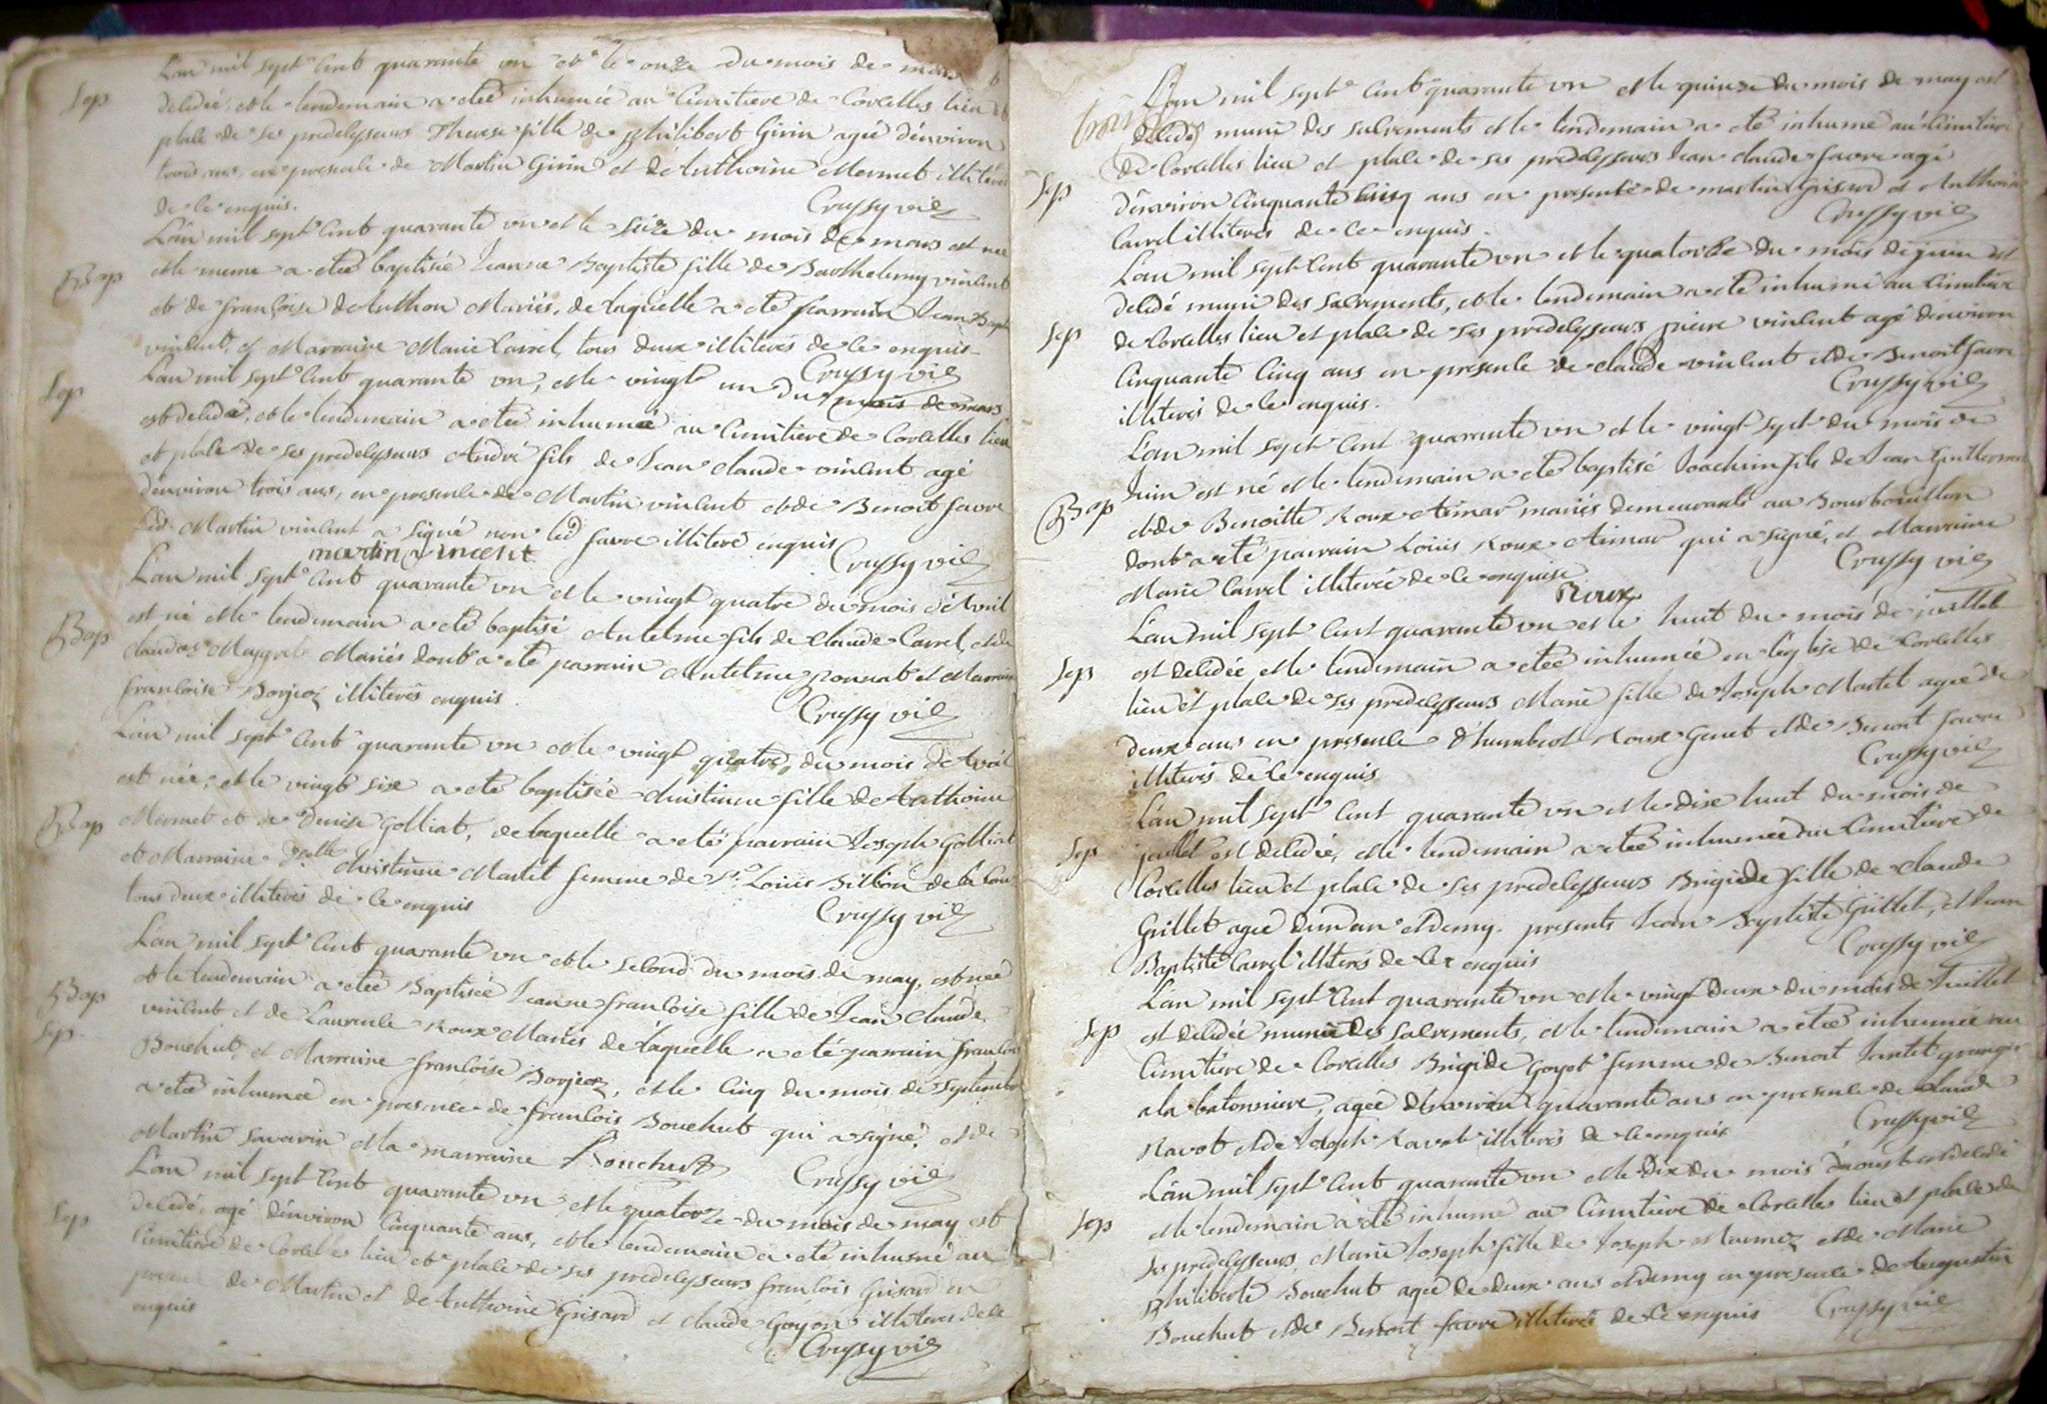 L'an mil sept cent quarante un et le onze du mois de mars
Sep
decedée, et le lendemain a eté inhumée au cimitiere de Corcelles lieu et
place de ses predecesseurs Therese fille de philibert Girin agée d'environ
trois ans, en presence de Martin Girin et de Anthoine Mermet illiterés
de ce enquis.
Crussy vic
L'an mil sept cent quarante un et le seize du mois de mars est née
Bap
et le meme a eté baptisée Jeanne Baptiste fille de Barthelemy vincent
et de françoise de Anthon Mariés, de laquelle a eté parrain Jean Bapt
vincent, et Marraine Marie Carrel, tous deux illiterés de ce enquis
Crussy vic
Sep
L'an mil sept cent quarante un, et le vingt un du mois de mars
est decedé, et le lendemain a eté inhumé au cimitiere de Corcelles lieu
et place de ses predecesseurs André fils de Jean Claude vincent agé
d'environ trois ans, en presence de Martin vincent et de Benoit favre
led Martin vincent a signé non led favre illiteré enquis
martin vincent
Crussy vic
L'an mil sept cent quarante un et le vingt quatre du mois d'Avril
Bap
est né et le lendemain a eté baptisé Antelme fils de Claude Carrel, et de
Mariés dont a eté parrain Antelme et Marraine
françoise Borjon illiterés enquis.
Crussy vic
L'an mil sept cent quarante un et le vingt quatre du mois d'Avril
est née, et le vingt six a eté baptisée christinne fille de Anthoine
Bap
Mermet et de Denise Golliat, de laquelle a eté parrain Joseph Golliat
et Marraine Dlle christinne Martel femme de Sr Louis Billion de la
tous deux illiterés de ce enquis
Crussy vic
L'an mil sept cent quarante un et le second du mois de may, est née
Bap
et le lendemain a eté Baptisée Jeanne françoise fille de Jean Claude
Sep.
vincent et de Laurence Roux Mariés de laquelle a eté parrain françois
Bouchut, et Marraine françoise Borjon, et le cinq du mois de septembre
a eté inhumée en presence de françois Bouchut qui a signé, et de
Martin savarin et la marraine Bouchut
Crussy vic
L'an mil sept cent quarante un, et le quatorze du mois de may est
Sep
decedé, agé d'environ cinquante ans, et le lendemain a eté inhumé au
cimitiere de Corcelles lieu et place de ses predecesseurs françois Grisard en
presence de Martin et de Anthoine Grisard et claude Goyon illiterés de ce
enquis
Crussy vic
L'an mil sept cent quarante un et le quinze du mois de may est
decedé muni des sacrements et le lendemain a eté inhumé au cimitiere
de Corcelles lieu et place de ses predecesseurs Jean claude favre agé
Sep
d'environ cinquante cinq ans en presence de martin Grisard et Anthoine
Carrel illiterés de ce enquis.
Crussy vic
L'an mil sept cent quarante un et le quatorze du mois de juin est
decedé muni des sacrements, et le lendemain a eté inhumé au cimitiere
Sep
de Corcelles lieu et place de ses predecesseurs pierre vincent agé d'environ
cinquante cinq ans en presence de claude vincent et de Benoit favre
illiterés de ce enquis.
Crussy vic
L'an mil sept cent quarante un et le vingt sept du mois de
Juin est né et le lendemain a eté baptisé Joachim fils de Jean
Bap
et de Benoitte Roux Aimar mariés demeurants au Bourbouillon
dont a eté parrain Loüis Roux Aimar qui a signé, et Marraine
Marie Carrel illiterée de ce enquise
Roux
Crussy vic
L'an mil sept cent quarante un et le huit du mois de juillet
Sep
est decedée et le lendemain a eté inhumée en l'eglise de Corcelles
lieu et place de ses predecesseurs Marie fille de Joseph Martel agée de
deux ans en presence d'humbert Roux Genet et de Benoit favre
illiterés de ce enquis
Crussy vic
L'an mil sept cent quarante un et le dix huit du mois de
Sep
juillet est decedée, et le lendemain a eté inhumée au cimitiere de
Corcelles lieu et place de ses predecesseurs Brigide fille de claude
Grillet agée d'un an et demy. presents Jean Baptiste Grillet, et Jean
Baptiste Carrel illiterés de ce enquis
Crussy vic
L'an mil sept cent quarante un et le vingt deux du mois de Juillet
Sep
est decedée munie des sacrements, et le lendemain a eté inhumée au
cimitiere de Corcelles Brigide Goyot femme de Benoit Jantet granger
a la batonniere, agée d'environ quarante ans en presence de claude
Ravot et de Joseph Ravot illiterés de ce enquis
Crussy vic
L'an mil sept cent quarante un et le dix du mois d'aoust est decedé
Sep
et le lendemain a eté inhumé au cimitiere de Corcelles lieu et place de
ses predecesseurs, Marie Joseph fille de Joseph et de Marie
philiberte Bouchut agée de deux ans et demy en presence de Augustin
Bouchut et de Benoit favre illiterés de ce enquis
Crussy vic